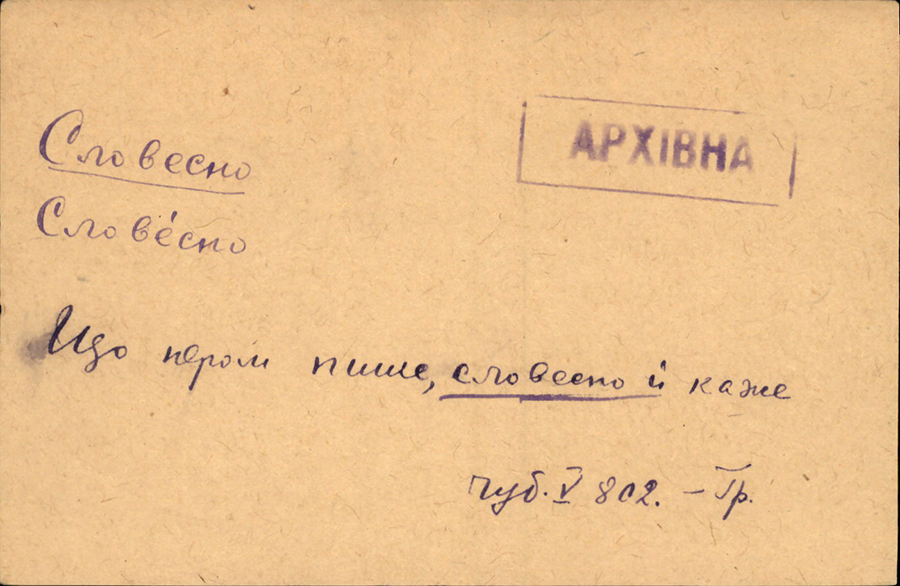 Словесно
АРХІВНА
Слове́сно
Що пером пише, словесно й каже
Чуб. V 802. – Гр.